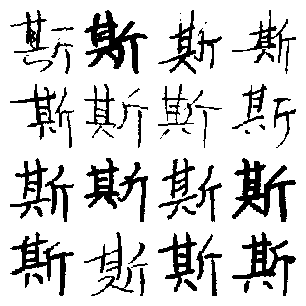 斯斯斯斯
斯斯斯斯
斯斯斯斯
斯斯斯斯